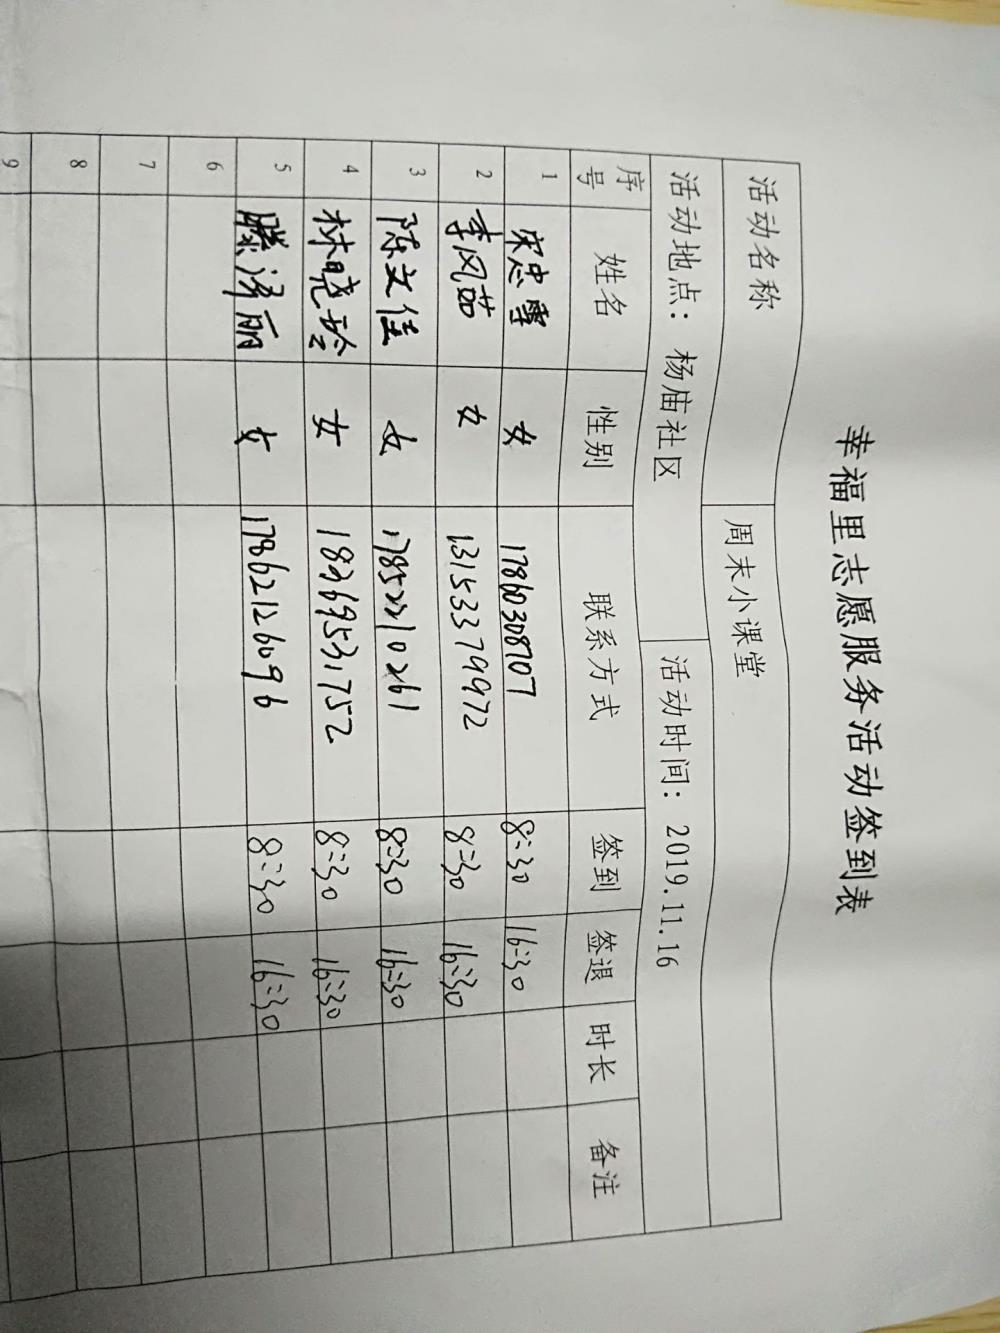 幸福里志愿服务活动签到表
活动名称 周末小课堂
活动地点：杨庙社区 活动时间：2019.11.16
序号 姓名 性别 联系方式 签到 签退 时长 备注
1 宋忠雪 女 17860308707 8:30 16:30
2 李风茹 女 13153379972 8:30 16:30
3 陈文佳 女 17852210261 8:30 16:30
4 林晓玲 女 18369531752 8:30 16:30
5 滕泽丽 女 17862126096 8:30 16:30
6
7
8
9